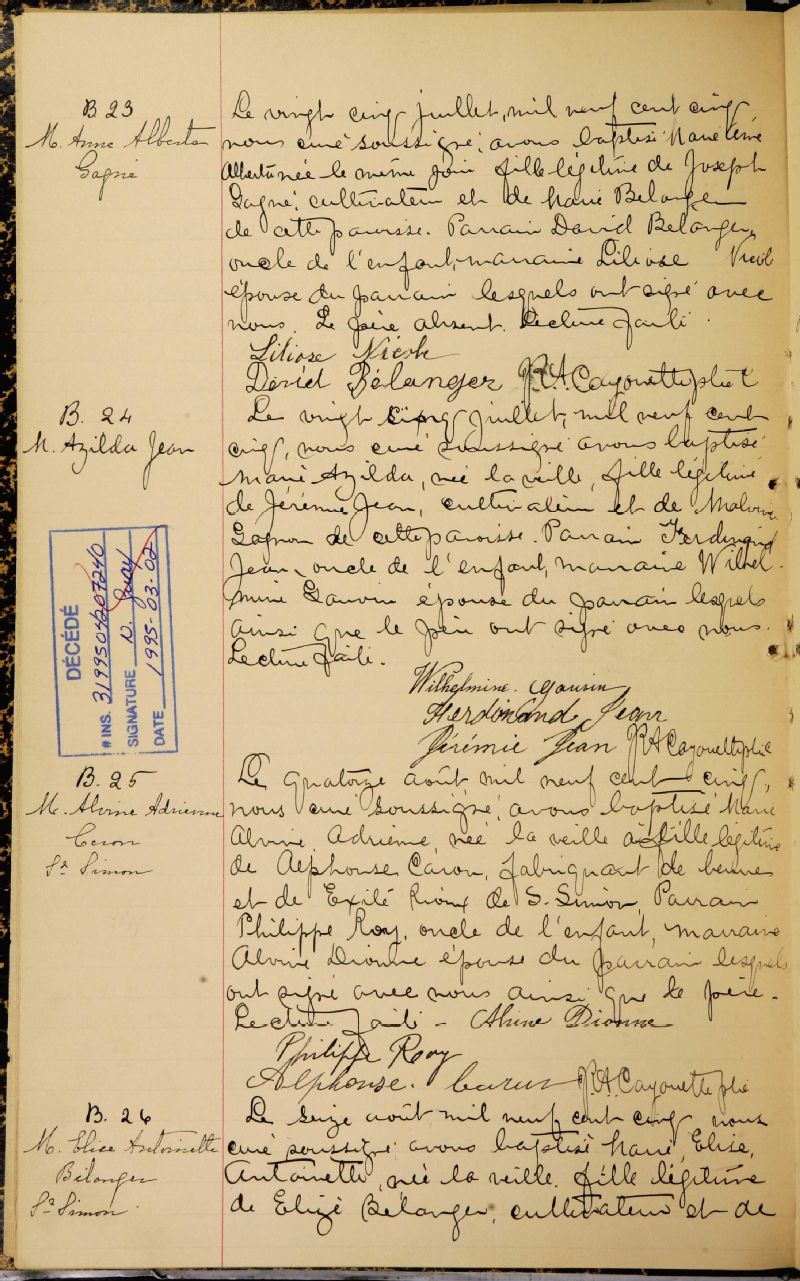 B 23
M. Anne Alberta
Gagné
Le vingt cinq juillet, mil neuf cent cinq,
nous curé soussigné, avons baptisé Marie Anne
Alberta née le même jour fille légitime de Joseph
Gagné, cultivateur et de Marie Belanger
de cette paroisse. Parrain David Belanger,
oncle de l'enfant, marraine Liliose Nicole
épouse du parrain lesquels ont signé avec
nous. Le père absent. Lecture faite.
Liliose Nicole
David Bélanger J.A. Cayouette ptre
B. 24
M. Azilda Jean
Le vingt cinq juillet, mil neuf cent
cinq, nous curé soussigné avons baptisé
Marie Azilda, née la veille, fille légitime
de Jérémie Jean, cultivateur et de Malvina
Gagnon de cette paroisse. Parrain Ferdinand
Jean, oncle de l'enfant, marraine Wilhel-
mine Gauvin épouse du parrain lesquels
ainsi que le père ont signé avec nous.
Lecture faite.
Wilhelmine Gauvin
Ferdinand Jean
Jérémie Jean J.A. Cayouette ptre
DÉCÉDÉ
# INS. 3199504207240
SIGNATURE
DATE 1995-03-02
B. 25
M. Alvine Adrienne
Caron
St Simon
Le quatorze août mil neuf cent cinq,
nous curé soussigné, avons baptisé Marie
Alvine, Adrienne, née la veille fille légitime
de Alphonse Caron, fabriquant de beurre
et de Exilé Rioux de S. Simon, Parrain
Philippe Roy, oncle de l'enfant, marraine
Alvine Dionne épouse du parrain lesquels
ont signé avec nous ainsi que le père.
Lecture faite - Alvine Dionne
Philippe Roy
Alphonse Caron J.A. Cayouette ptre
B. 26
M. Elise Antoinette
Bélanger
St Simon
Le seize août mil neuf cent cinq nous
curé soussigné avons baptisé Marie, Elise,
Antoinette, née la veille, fille légitime
de Elizé Bélanger, cultivateur et de